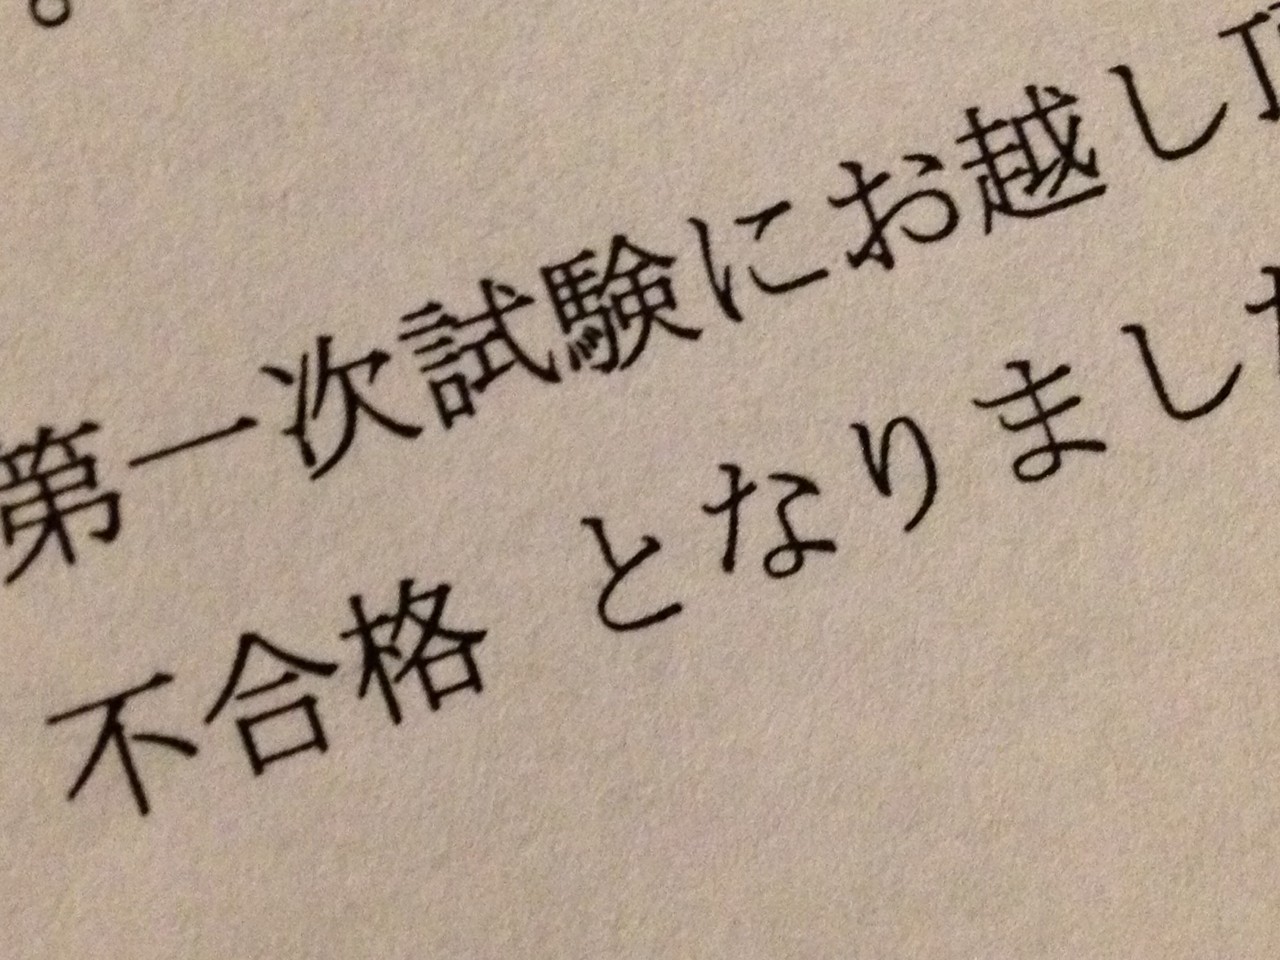 。
第一次試験にお越し頂
不合格 となりました